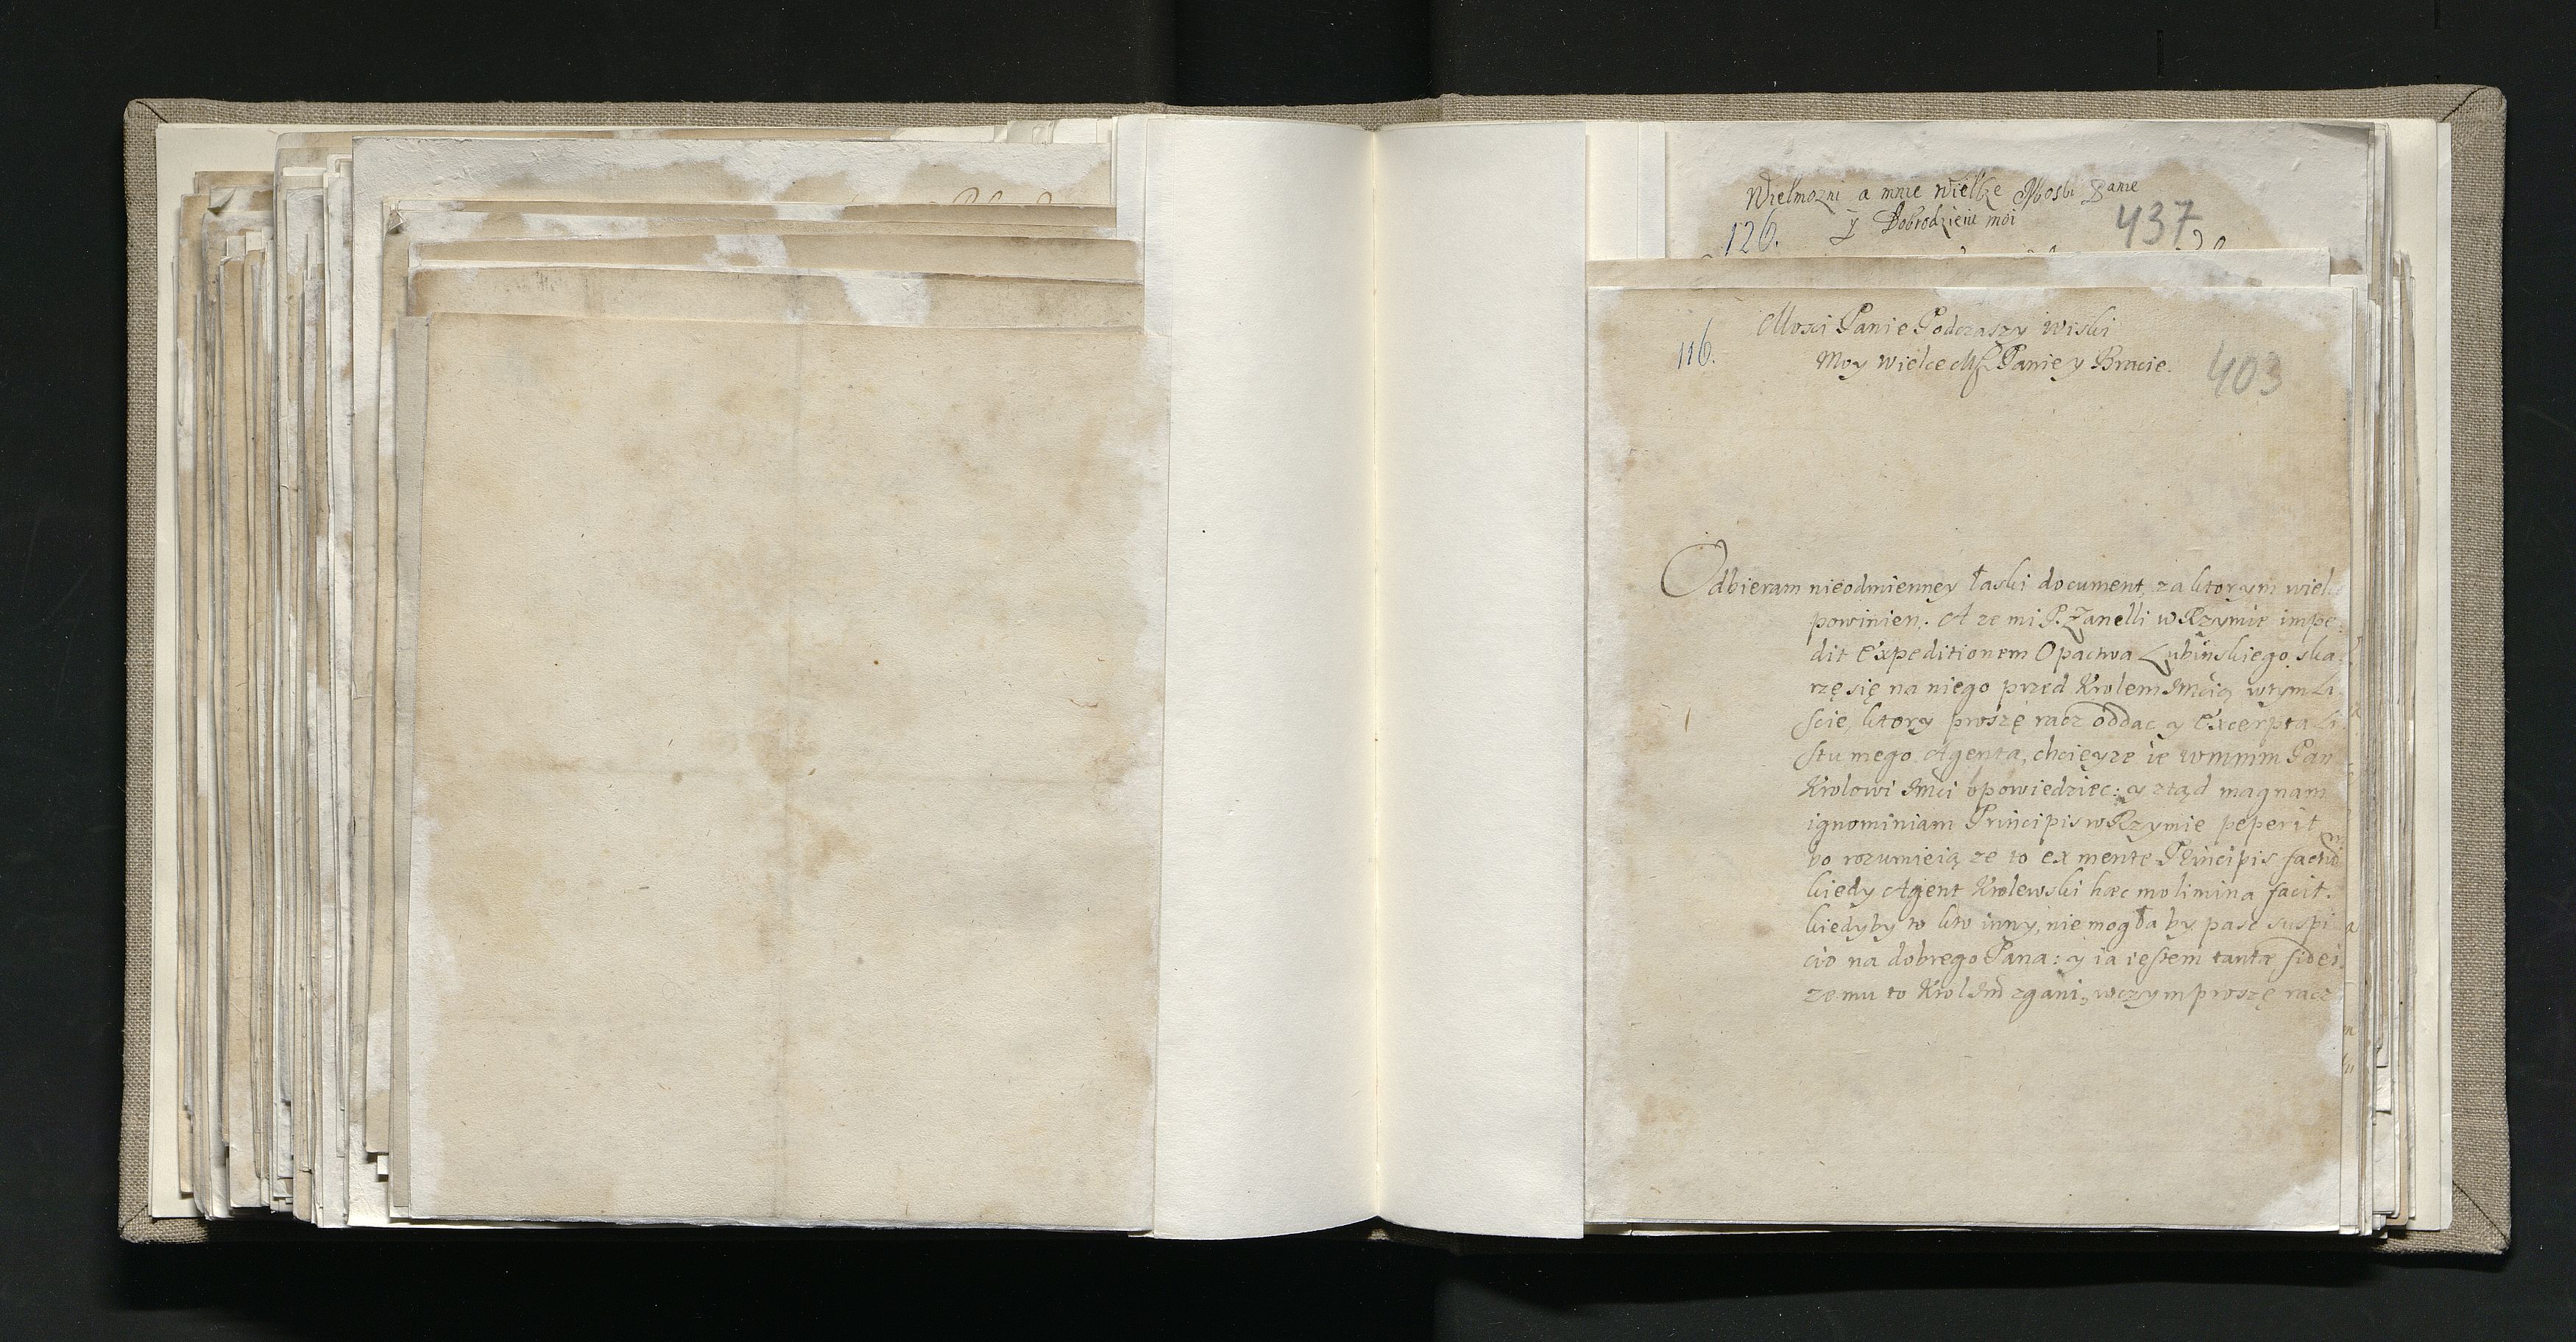 Wielmozni a mnie Wielke Mosbi Panie
126. y Dobrodzieiu moi 437
116. Mosci Panie Podczaszy Wiski
Moy Wielce Mſz Panie y Bracie. 403
Odbieram nieodmienney łaski document, za ktorym wiel
powinien. A ze mi P. Zanelli w Rzymie impe
dit expeditionem Opactwa Lubinskiego, ska
rzę się na niego przed Krolem Jmcią, w tym Li
scie, ktory proszę racz oddac y excerpta Li
stu mego Agenta, chcięyze ie wmmm Pan
Krolowi Jmci opowiedziec: y ztąd magnam
ignominiam Principis w Rzymie peperit
bo rozumieią ze to ex mente Principis factū
kiedy Agent Krolewski hæc molimina facit.
kiedyby to kto inny, nie mogła by pasc suspi
cio na dobrego Pana: y ia iestem tantæ fidei
ze mu to Krol Jm̃ zgani, w czym proszę racz